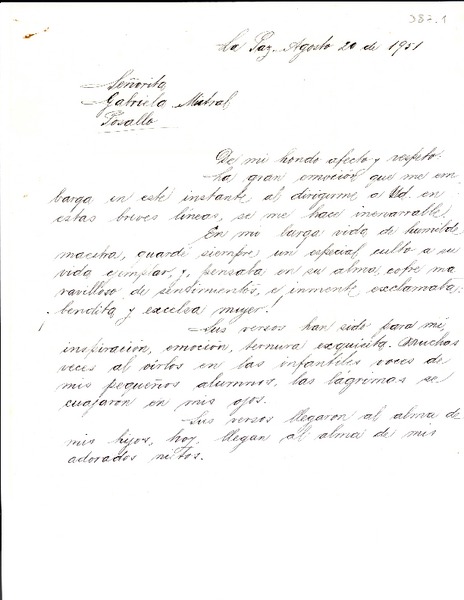 387.1
La Paz, Agosto 20 de 1951
Señorita
Gabriela Mistral
Rosallo
De mi hondo afecto y respeto.
La gran emoción que me em
barga en este instante, al dirigirme a Ud. en
estas breves líneas, se me hace inenarrable.
En mi larga vida de humilde
maestra, guardé siempre un especial culto a su
vida ejemplar, y, pensaba en su alma, cofre ma
ravilloso de sentimientos, e inmente exclamaba:
¡bendita y excelsa mujer!
Sus versos han sido para mí
inspiración, emoción, ternura exquisita. Muchas
veces al oírlos en las infantiles voces de
mis pequeños alumnos, las lágrimas se
cuajaron en mis ojos.
Sus versos llegaron al alma de
mis hijos, hoy, llegan al alma de mis
adorados nietos.